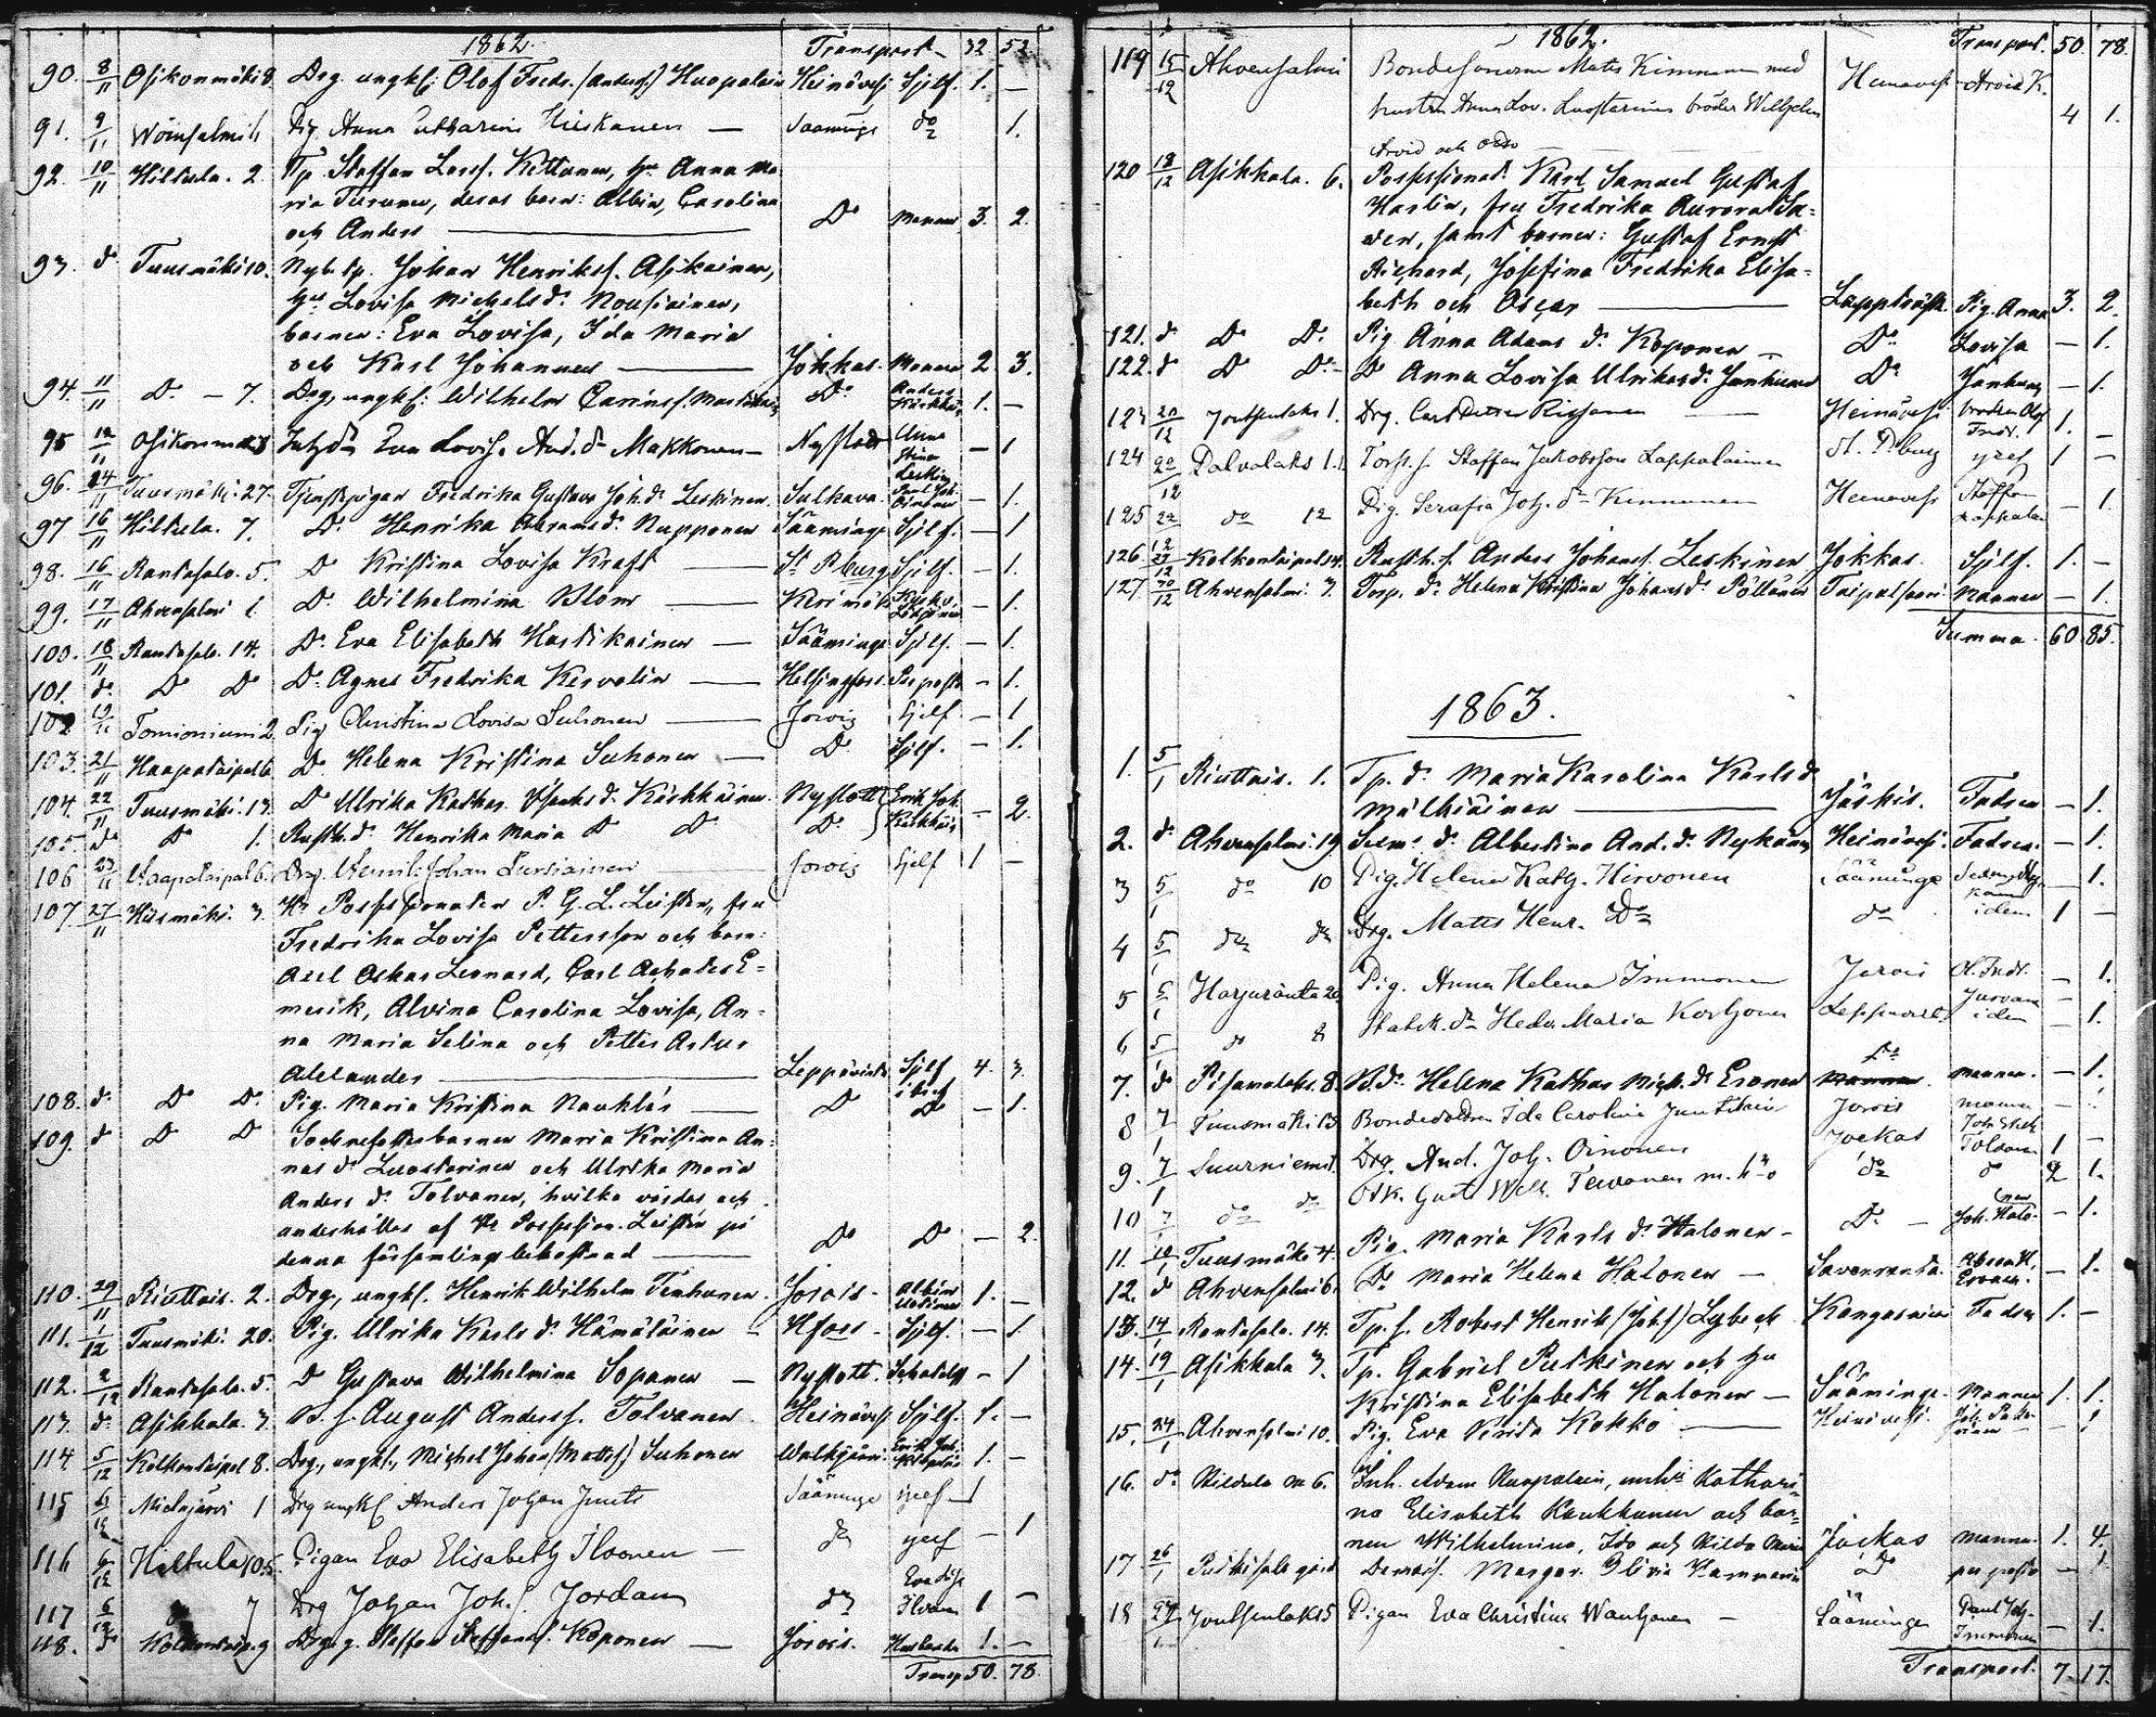 1862. Transport 32 52.
90. 8/11 Asikonmäki 8. Drg. ungkl: Olof Fredr. /Anderss/ Huopalain Heinävesi Sjelf. 1. —
91. 9/11 Pig. Anna Catharina Hiiskanen — Sääminge do 1.
92. 10/11 Hiltula. 2. Tp. Staffan Larss. Kettunen, hu Anna Ma-
ria Turunen, deras barn: Albin, Carolina
och Anders — Do Mannen 3. 2.
93. do Tuusmäki 10. Nyb. tp. Johan Henrikss. Asikainen,
hu Lovisa Michelsdr Nousiainen,
barnen: Eva Lovisa, Ida Maria
och Karl Johannes — Jokkas. Mannen 2. 3.
94. 11/11 Do — 7. Drg, ungkl: Wilhelm Do Anders 1. —
95 12/11 Eva Lovisa And. dr Makkonen — Nyslott Anna Stina — 1
96. 14/11 Tuusmäki 27. Tjenstepigan Fredrika Gustava Joh. dr Leskinen. Sulkava. — 1.
97 16/11 Hiltula. 7. Do Henrika Abramsdr Nupponen Sääminge Sjelf. — 1
98. 16/11 Rantasalo. 5. Do Kristina Lovisa Kraft — St Pburg Sjelf. — 1.
99. 17/11 Ahvensalmi 1. Do Wilhelmina Blom — Kerimäki — 1.
100. 18/11 Rantasalo. 14. Do Eva Elisabeth Hartikainen — Sääminge Sjelf. — 1.
101. do Do Do Do Agnes Fredrika Kervelin — Helsingfors. Per posto — 1.
102 19/11 Tomioniemi 2 Pig Christina Lovisa Suhonen — Jorois Sjelf — 1
103. 21/11 Haapataipal 6 Do Helena Kristina Suhonen — Do Sjelf. — 1.
104. 22/11 Tuusmäki. 13. Do Ulrika Kathar. Isacksdr Kärkkäinen. Nyslott Erik Joh. Kärkkäin — 2.
105. do Do 1. Rusth. dr Henrika Maria Do Do Do
106 23/11 Haapataipal 6. Drg. Henrik Johan Jorois Sjelf 1 —
107. 27/11 Hiismäki. 3. Hr Possessionaten P. G. L. Leisten, fru
Fredrika Lovisa Pettersson och barn:
Axel Oskar Leonard, Carl Achates E-
merik, Alvina Carolina Lovisa, An-
na Maria Selina och Petter Artur
Alexander — Leppävirta Sjelf 4. 3.
108. do Do Do Pig. Maria Kristina Naukler — Do ibid Do — 1.
109. do Do Do Socknefosterbarnen Maria Kristina An-
nas dr Luostarinen och Ulrika Maria
Anders dr Tolvanen, hvilka vårdas och
underhålles af Hr Possession. Leistén på
denna församlings bekostnad — Do Do — 2.
110. 29/11 Riuttais. 2. Drg, ungkl. Henrik Wilhelm Tenhunen. Jorois. Albin 1. —
111. 1/12 Tuusmäki. 20. Pig. Ulrika Karls dr Hämäläinen — Hfors. Sjelf. — 1.
112. 2/12 Rantasalo. 5. Do Gustava Wilhelmina Sopanen — Nyslott. — 1
113. do Asikkala. 3. B. s. August Anderss. Tolvanen. Heinäves. Sjelf. 1. —
114 5/12 Kolkontaipal 8. Drg., ungkl., Michel Johan /Mattss/ Suhonen Walkjärvi. 1. —
115 6/12 1 Drg ungkl Anders Johan Sääminge sjelf 1
116 6/12 Hiltula 10.5. Pigan Eva Elisabeth Ilvonen — do sjelf — 1
117 6/12 do 7 Drg Johan Joh. s. Jordan do Eva Lisa Ilvonen 1 —
118. do Drg. g. Staffan Staffanss. Koponen — Jorois. 1. —
Transp 50. 78.
1862. Transport. 50. 78.
119 15/12 Ahvensalmi Bondesonen Mats Kinnunen med Heinäves Arvid K.
hustru Anna Lov. Luostarinen bröder Wilhelm 4 1.
Arvid och Otto —
120 18/12 Asikkala. 6. Possessionat. Karl Samuel Gustaf
Harlin, fru Fredrika Aurora
samt barnen: Gustaf Ernst
Richard, Josefina Fredrika Elisa-
beth och Oscar — Lappträsk. Pig. Anna 3. 2.
121. do Do Do Pig Anna Adams dr Koponen — Do Lovisa — 1.
122. do Do Do Do Anna Lovisa Ulrikasdr Janhunen Do Janhun — 1.
123 20/12 Joutsenlaks 1. Drg. Carl Petter — Heinävesi brodern Olof Fredr. 1. —
124 20/12 Palvalaks 1. Torp. s. Staffan Jakobsson Lappalainen St. Pburg sjelf 1 —
125 22/12 do 12 Pig. Serafia Joh. dr Kinnunen Heinäves Staffan Lappalai — 1.
126 27/12 Kolkontaipal 14. Rusth. s. Anders Johanss. Leskinen Jokkas. Sjelf. 1. —
127. 30/12 Ahvensalmi. 3. Torp. dr Helena Kristina Johansdr Pöllänen Taipalsaari Mannen — 1.
Summa. 60 85.
1863.
1. 5/1 Riuttais. 1. Tp. dr Maria Karolina Karls dr
Malkiäinen — Jäskis. Fadren — 1.
2. do Ahvensalmi. 19. dr Albertina And. dr Nykänen Heinävesi. Fadren. — 1.
3 5/1 do 10 Pig. Helena Kath. Hirvonen Sääminge — 1.
4 5/1 do do Drg. Matts Henr. Do do idem 1 —
5 5/1 Harjuranta 20 Pig. Anna Helena Immonen Jorois Ol. Fredr. — 1.
6 5/1 do 8 dr Heda Maria Korhonen Leppävirt. idem — 1.
7. do Pisamalaks. 8. B. dr Helena Kathar Mich. dr Eronen Do mannen. — 1.
8 7/1 Tuusmäki 13 Bondedottren Ida Carolina Jorois mannen — 1
9. 7/1 Suurniemi. Drg. And. Joh. Oinonen Jockas Tolvanen 1 —
10 7/1 do do Gust. Wilh. Tervonen m. hu do do 2 1.
11. 10/1 Tuusmäki 4. Pig. Maria Karls dr Halonen — Do — Joh. Halo- nen — 1.
12. do Ahvensalmi 6. Do Maria Helena Halonen — Savonranta. — 1.
13. 14/1 Rantasalo. 14. Tp. s. Robert Henrik /Joh.s/ Lybeck Kangasniemi Fadren 1. —
14. 19/1 Asikkala 3. Tp. Gabriel Putkinen och hu
Kristina Elisabeth Halonen — Sääminge. Mannen 1. 1.
15. 24/1 Ahvensalmi 10. Pig. Eva Kokko — Heinävesi. — 1
16. do Hiltula No 6. Inh. Adam Huopalain, m. hu Kathari-
na Elisabeth Kaukkunen och bar-
nen Wilhelmina, Ida och Hilda Maria Jockas mannen. 1. 4.
17 26/1 Putkisalo gård Margar. Olivia Hammarin Do per posto — 1.
18 27/1 Joutsenlaks 5 Pigan Eva Christina Wauhonen — Sääminge Paul Joh. Immonen — 1.
Transport. 7. 17.